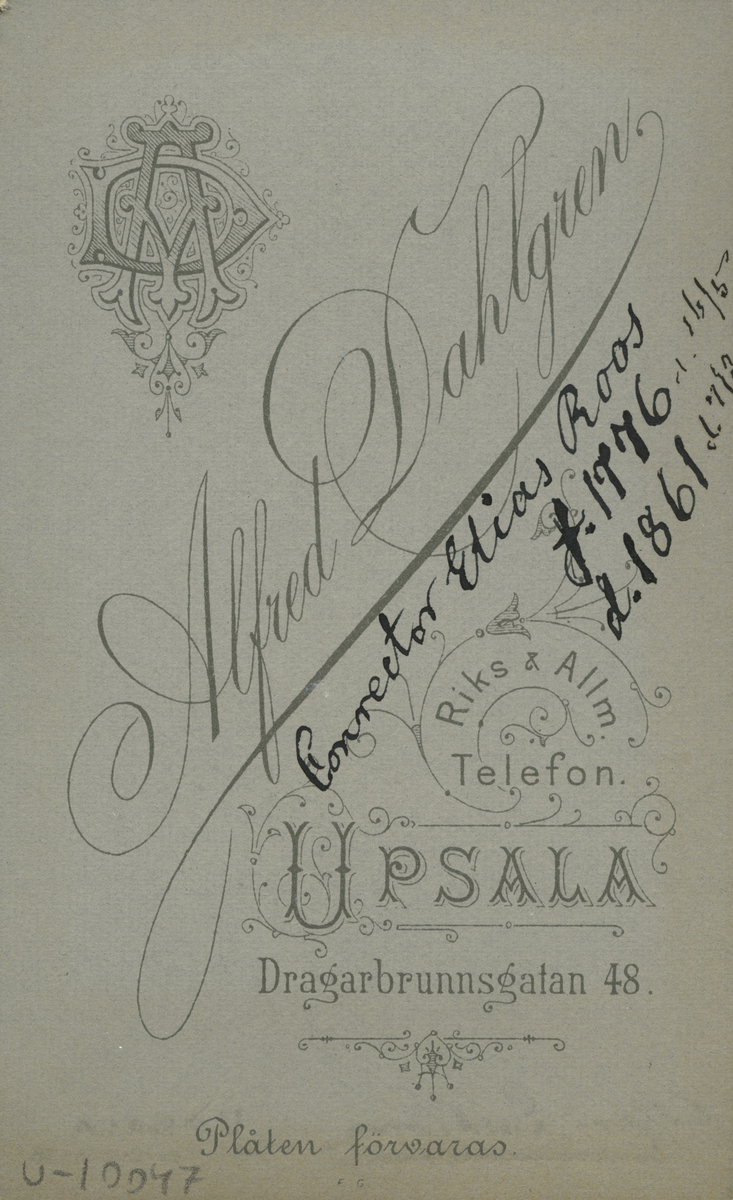 AD
Alfred Dahlgren
Conrector Elias Roos
f. 1776
d. 1861
Riks & Allm.
Telefon.
UPSALA
Dragarbrunnsgatan 48.
Plåten förvaras.
U-10047